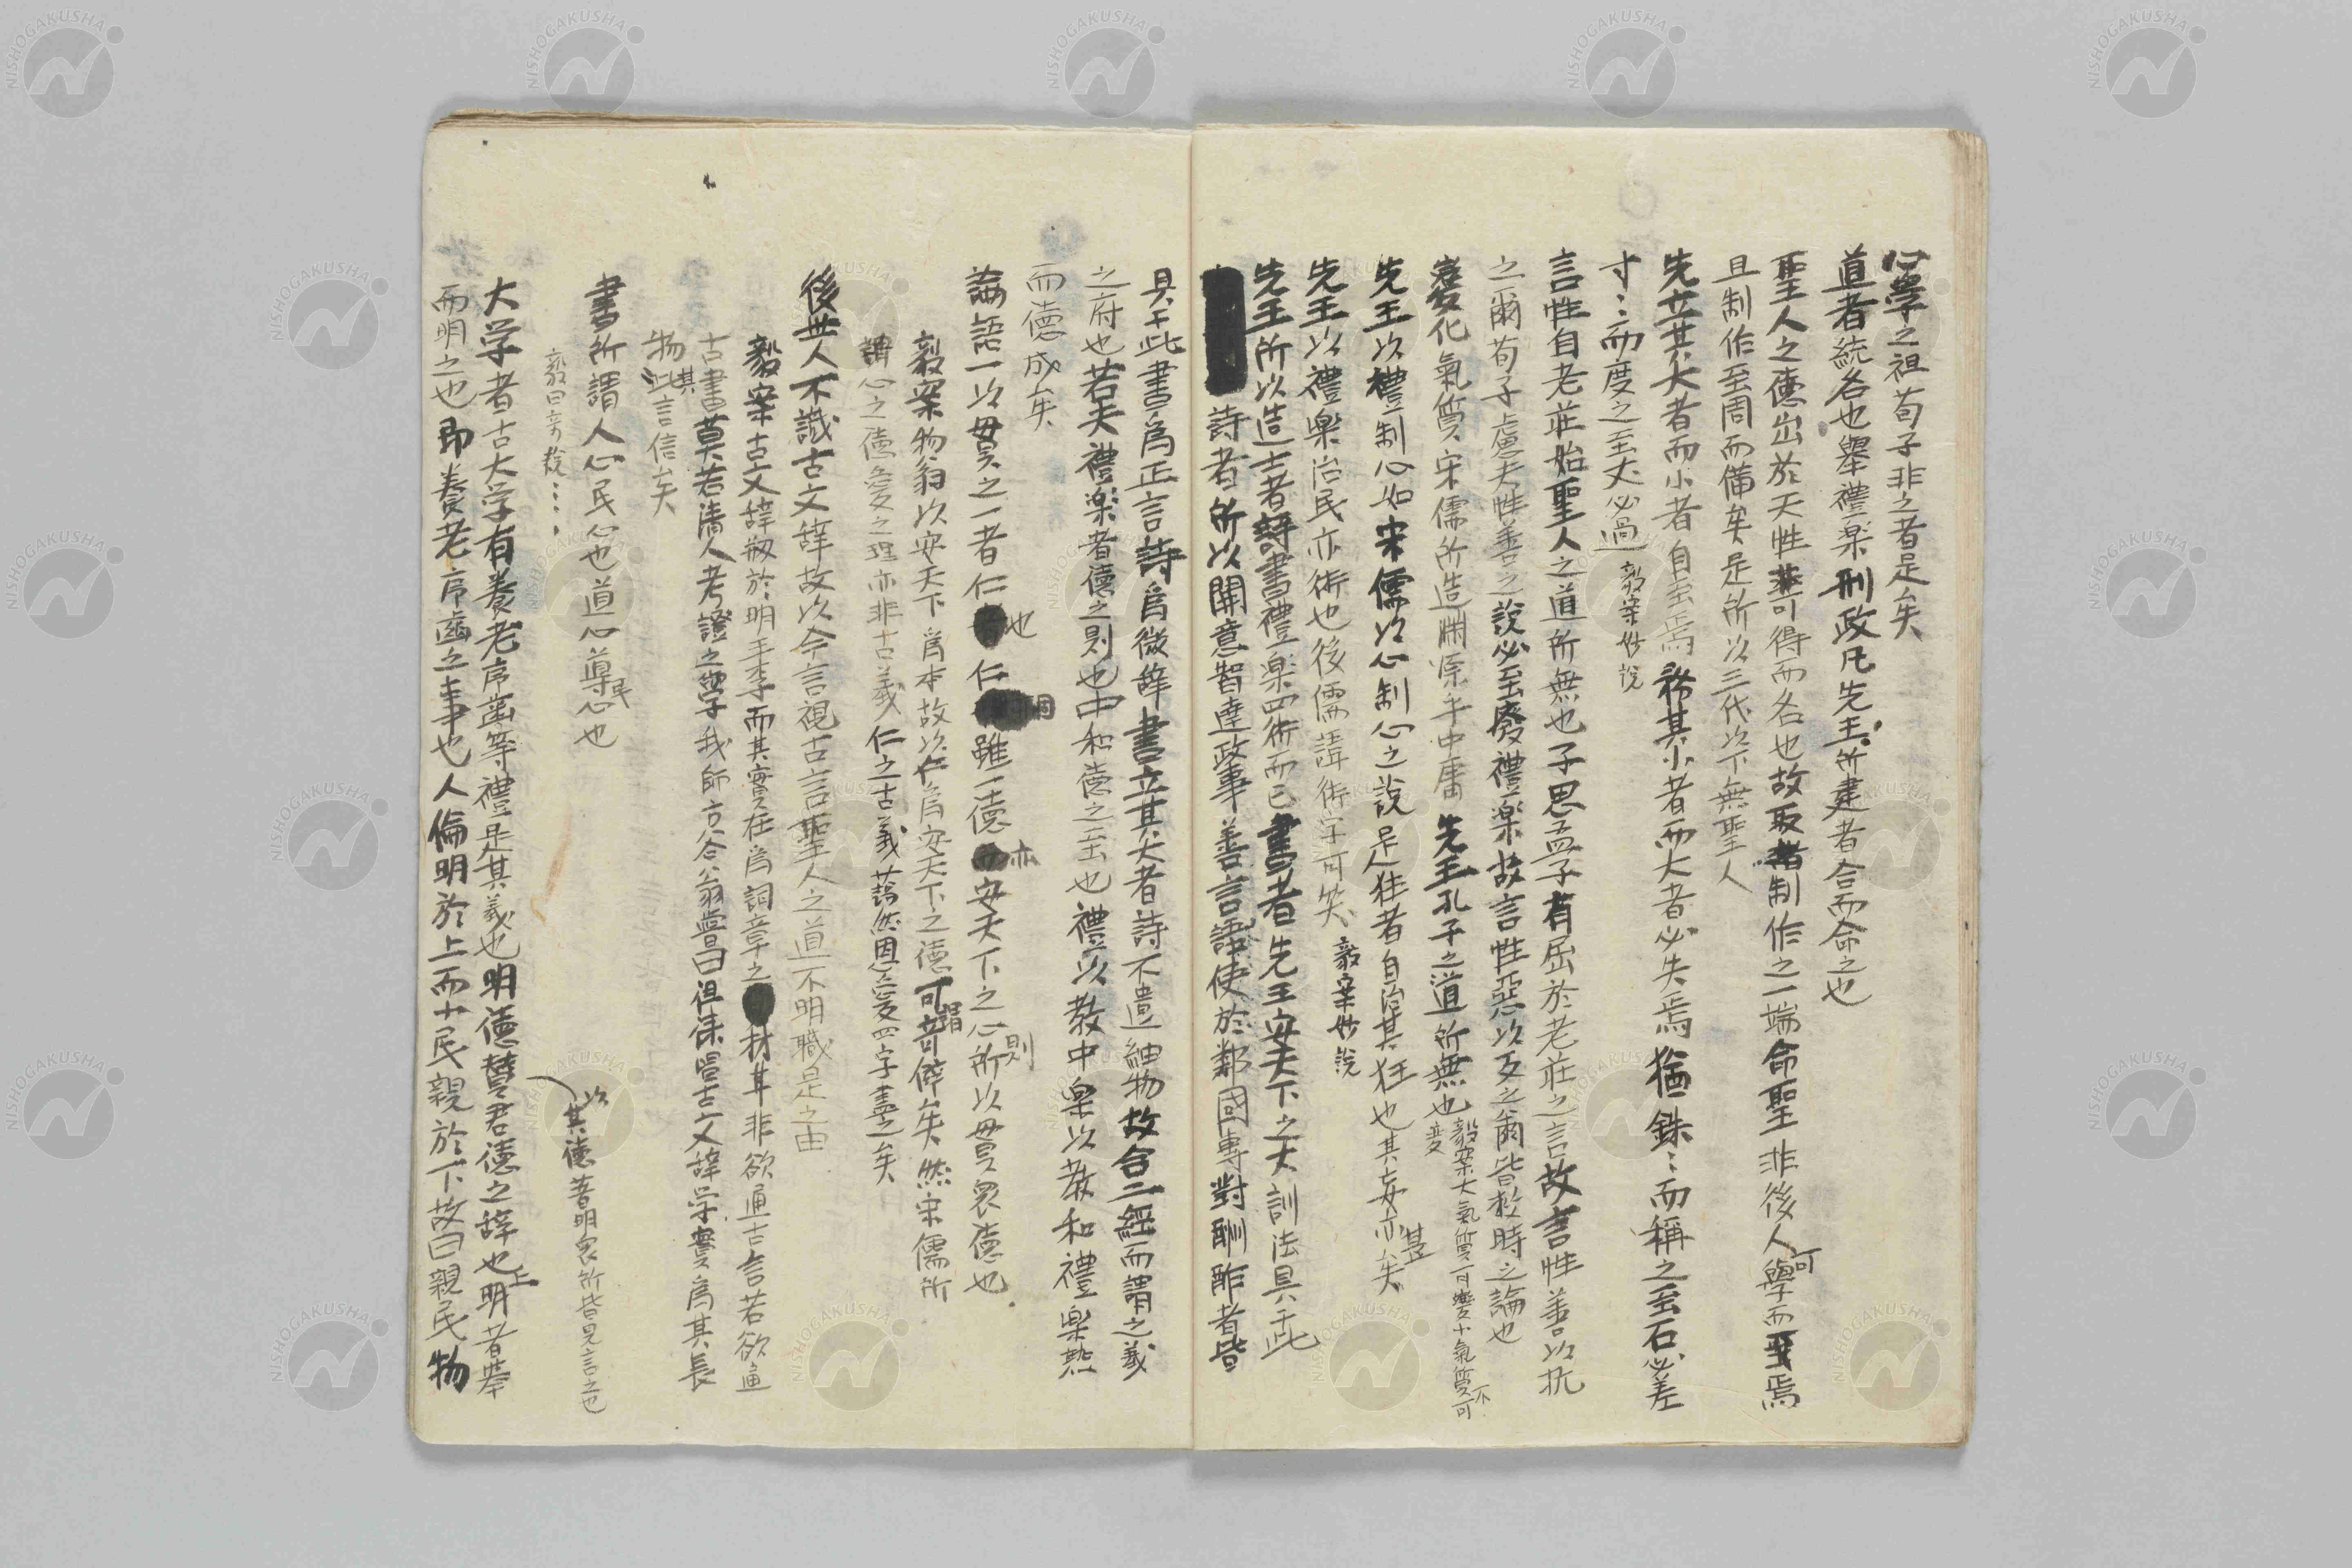 心學之祖荀子非之者是矣
道者統名也擧禮楽刑政凡先王所建者合而命之也
聖人之德出於天性非可得而名也故取諸制作之一端命聖非後人可學而至焉
且制作至周而備矣是所以三代以下無聖人
先立其大者而小者自至焉務其小者而大者必失焉猶銖〻而稱之至石必差
寸〻而度之至丈必過 毅案妙說
言性自老莊始聖人之道所無也子思孟子有屈於老莊之言故言性善以抗
之爾荀子慮夫性善之說必至廢禮楽故言性惡以反之爾皆救時之論也
変化氣質宋儒所造淵源乎中庸先王孔子之道所無也 毅案大氣質可變小氣質不可変
先王以禮制心如宋儒以心制心之說是狂者自治其狂也其妄亦甚矣
先王以禮楽治民亦術也後儒諱術字可笑 毅案妙說
先王所以造士者詩書禮楽四術而已書者先王安天下之大訓法具于此
詩者所以開意智達政事善言語使於鄰國專對酬酢者皆
具于此書為正言詩為微辞書立其大者詩不遺細物故合二經而謂之義
之府也若夫禮楽者德之則也中和德之至也禮以教中楽以教和禮楽熟
而德成矣
論語一以貫之一者仁也仁雖一德亦安天下之心所以則貫衆德也
毅案物翁以安天下為本故以仁為安天下之德可謂奇僻矣然宋儒所
謂心之德愛之理亦非古義仁之古義藹然恩愛四字盡之矣
後世人不識古文辞故以今言視古言聖人之道不明職是之由
毅案古文辞剏於明王李而其實在為詞章之材耳非欲通古言若欲通
古書莫若清人考證之學我師方谷翁嘗曰徂徠唱古文辞学實為其長
物此其言信矣
書所謂人心民心也道心導民心也
毅曰奇說〻〻
大学者古大学有養老序歯等禮是其義也明德賛君德之辞也明者擧
以其德著明衆所皆見言之也
而明之也即養老序歯之事也人倫明於上而小民親於下故曰親民物